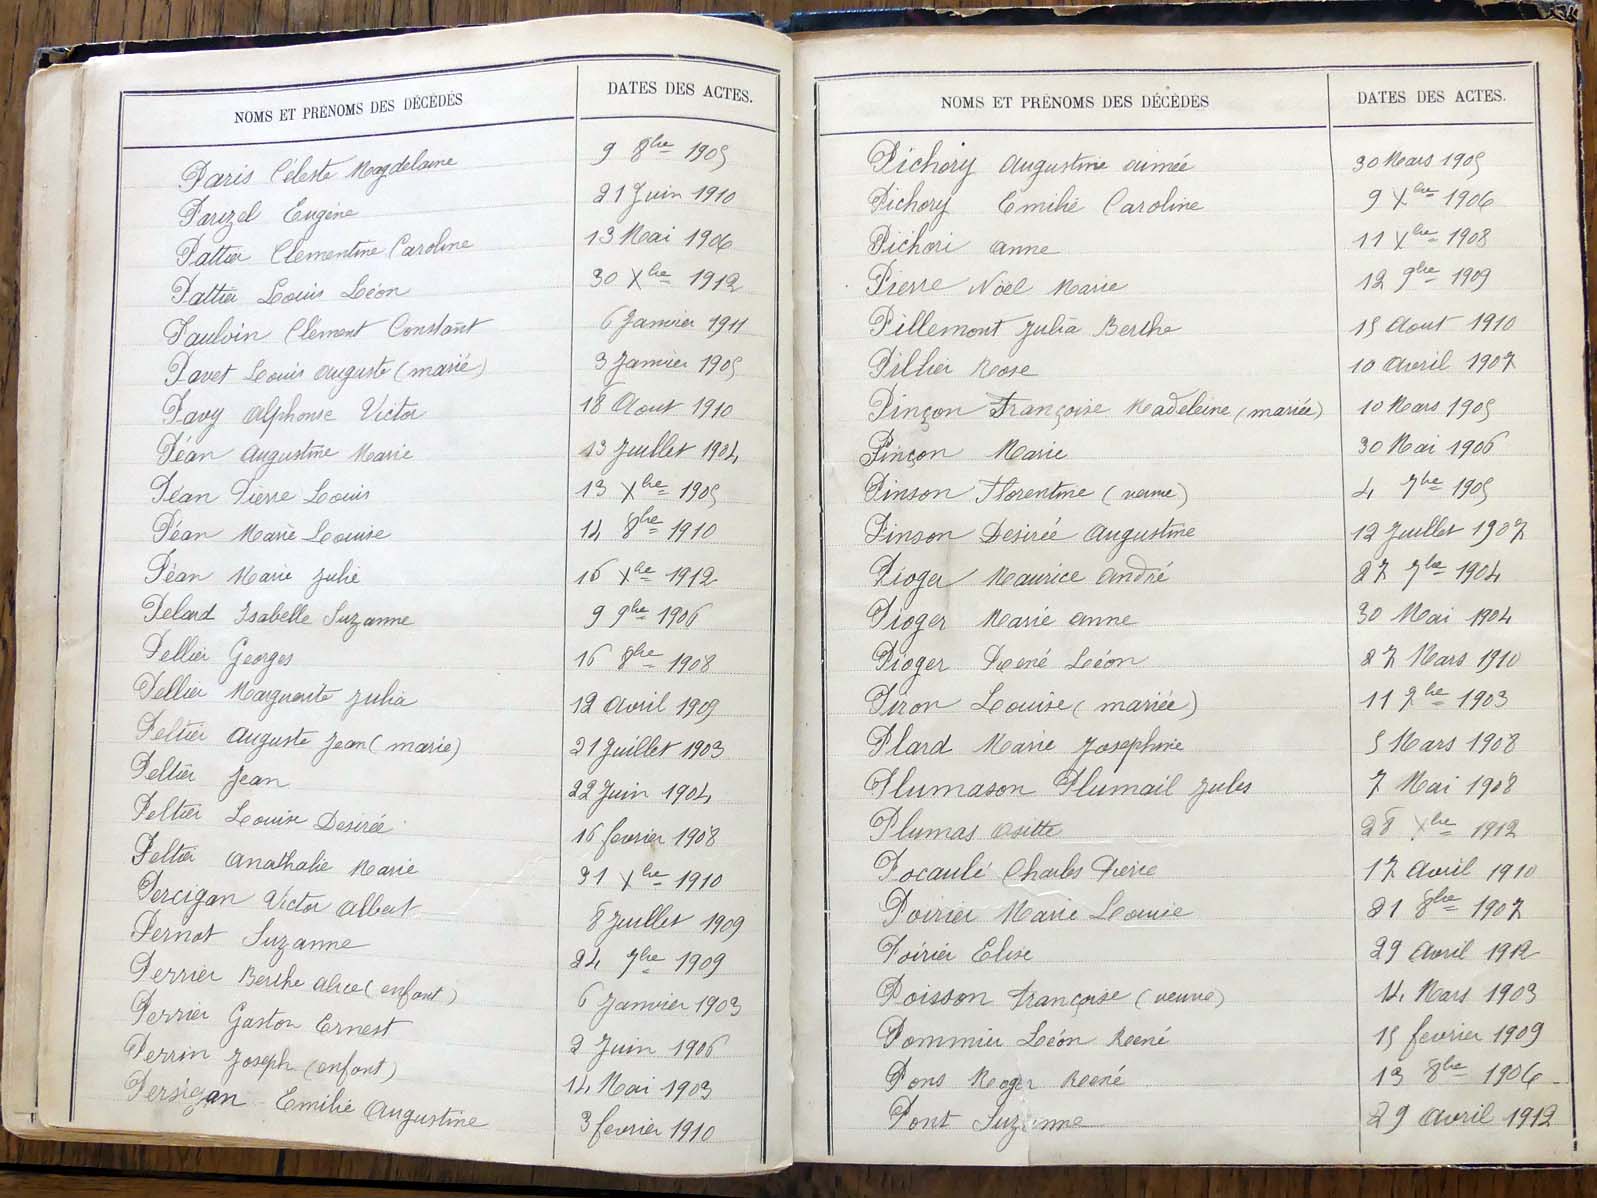 NOMS ET PRÉNOMS DES DÉCÉDÉS DATES DES ACTES.
Paris Céleste Magdelaine 9 8bre 1905
Parizel Eugène 21 Juin 1910
Pattier Clémentine Caroline 13 Mai 1906
Pattier Louis Léon 30 Xbre 1912
Paulvin Clément Constant 6 Janvier 1911
Pavet Louis Auguste (marié) 3 Janvier 1905
Pavy Alphonse Victor 18 Aout 1910
Péan Augustine Marie 13 Juillet 1904
Péan Pierre Louis 13 Xbre 1905
Péan Marie Louise 14 8bre 1910
Péan Marie Julie 16 Xbre 1912
Pelard Isabelle Suzanne 9 9bre 1906
Pellier Georges 16 8bre 1908
Pellier Marguerite Julia 12 Avril 1909
Peltier Auguste Jean (marié) 21 Juillet 1903
Peltier Jean 22 Juin 1904
Peltier Louise Desirée 16 fevrier 1908
Peltier Anathalie Marie 31 Xbre 1910
Percigan Victor Albert 8 Juillet 1909
Pernot Suzanne 24 7bre 1909
Perrier Berthe Alice (enfant) 6 Janvier 1903
Perrier Gaston Ernest 2 Juin 1906
Perrin Joseph (enfant) 14 Mai 1903
Persigan Emilie Augustine 3 fevrier 1910
NOMS ET PRÉNOMS DES DÉCÉDÉS DATES DES ACTES.
Pichory Augustine Aimée 30 Mars 1905
Pichory Emilie Caroline 9 Xbre 1906
Pichori Anne 11 Xbre 1908
Pierre Noël Marie 12 9bre 1909
Pillemont Julia Berthe 15 Aout 1910
Pillier Rose 10 Avril 1907
Pinçon Françoise Madeleine (mariée) 10 Mars 1905
Pinçon Marie 30 Mai 1906
Pinson Florentine (veuve) 4 7bre 1905
Pinson Desirée Augustine 12 Juillet 1907
Pioger Maurice André 27 7bre 1904
Pioger Marie Anne 30 Mai 1904
Pioger René Léon 27 Mars 1910
Piron Louise (mariée) 11 9bre 1903
Plard Marie Joséphine 5 Mars 1908
Plumason Plumail Jules 7 Mai 1908
Plumas 28 Xbre 1912
Pocaulé Charles Pierre 17 Avril 1910
Poirier Marie Louise 21 8bre 1907
Poirier Elise 29 Avril 1912
Poisson Françoise (veuve) 14 Mars 1903
Pommier Léon René 15 fevrier 1909
Pons Roger René 13 8bre 1906
Pont Suzanne 29 Avril 1912